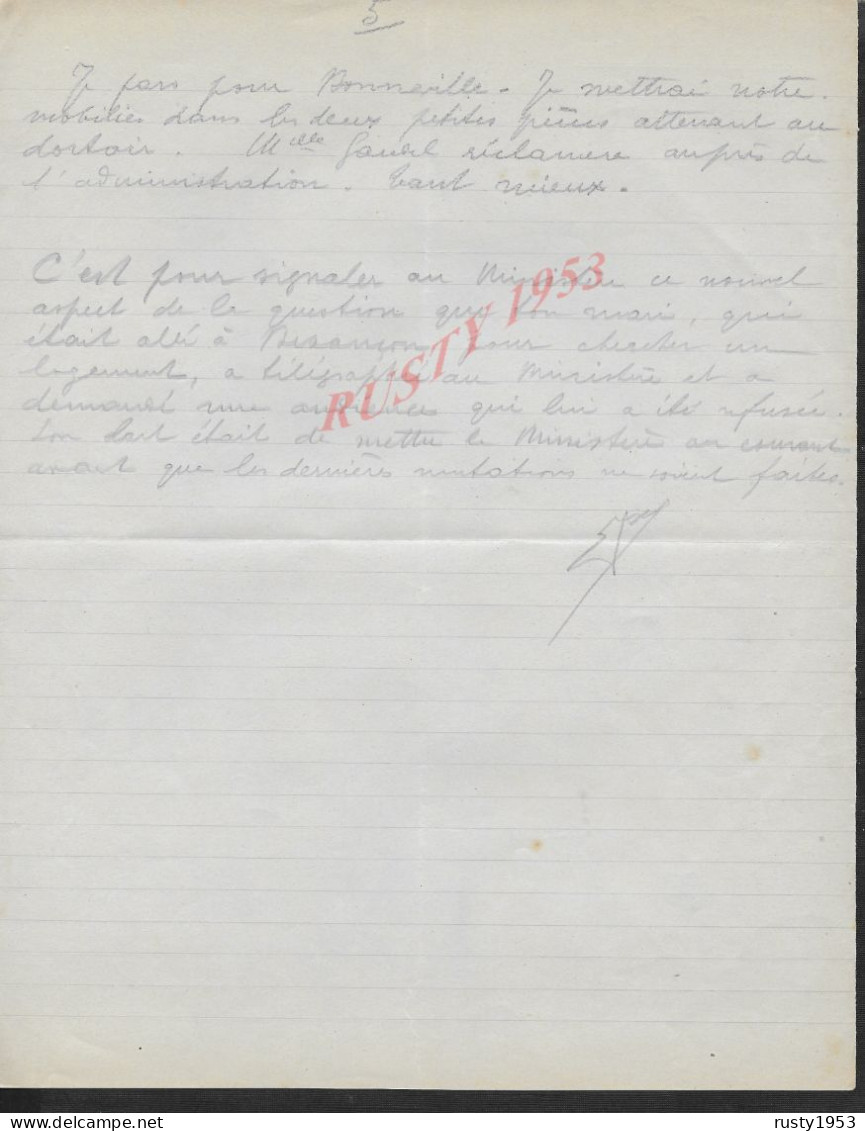 5
Je pars pour Bonneville. Je mettrai notre
mobilier dans les deux petites pièces attenant au
dortoir. Melle réclamera auprès de
l'administration. Tant mieux.
C'est pour signaler au Ministère ce nouvel
aspect de la question que son mari, qui
était allé à Besançon pour chercher un
logement, a télégraphié au Ministère et a
demandé une audience qui lui a été refusée.
Son but était de mettre le Ministère au courant
avant que les dernières mutations ne soient faites.
RUSTY 1953
rusty1953